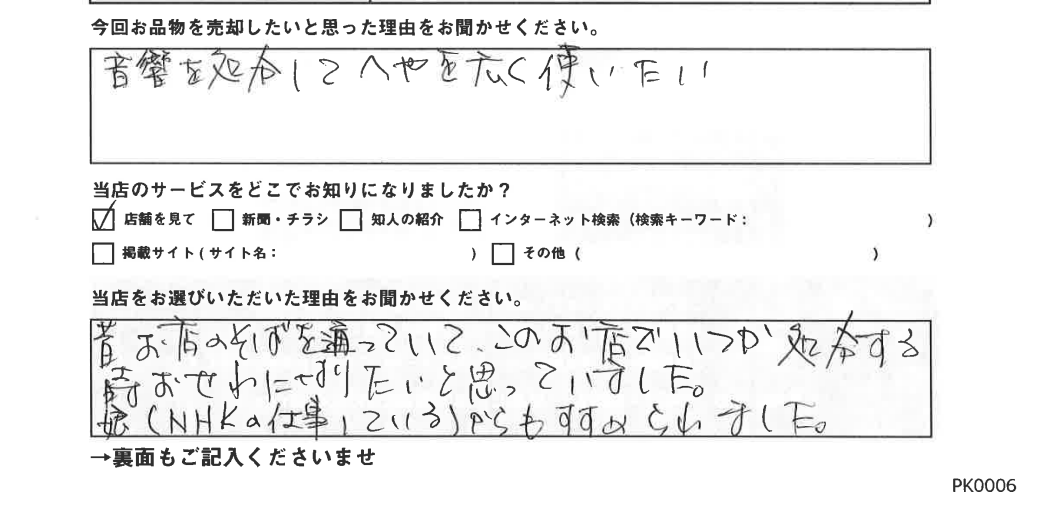 今回お品物を売却したいと思った理由をお聞かせください。
音響を処分して へやを広く使いたい
当店のサービスをどこでお知りになりましたか？
☑ 店舗を見て □ 新聞・チラシ □ 知人の紹介 □ インターネット検索（検索キーワード： ）
□ 掲載サイト（サイト名： ） □ その他（ ）
当店をお選びいただいた理由をお聞かせください。
昔お店のそばを通っていて、このお店でいつか処分する
時おせわになりたいと思っていました。
娘（NHKの仕事している）からもすすめられました。
→裏面もご記入くださいませ
PK0006